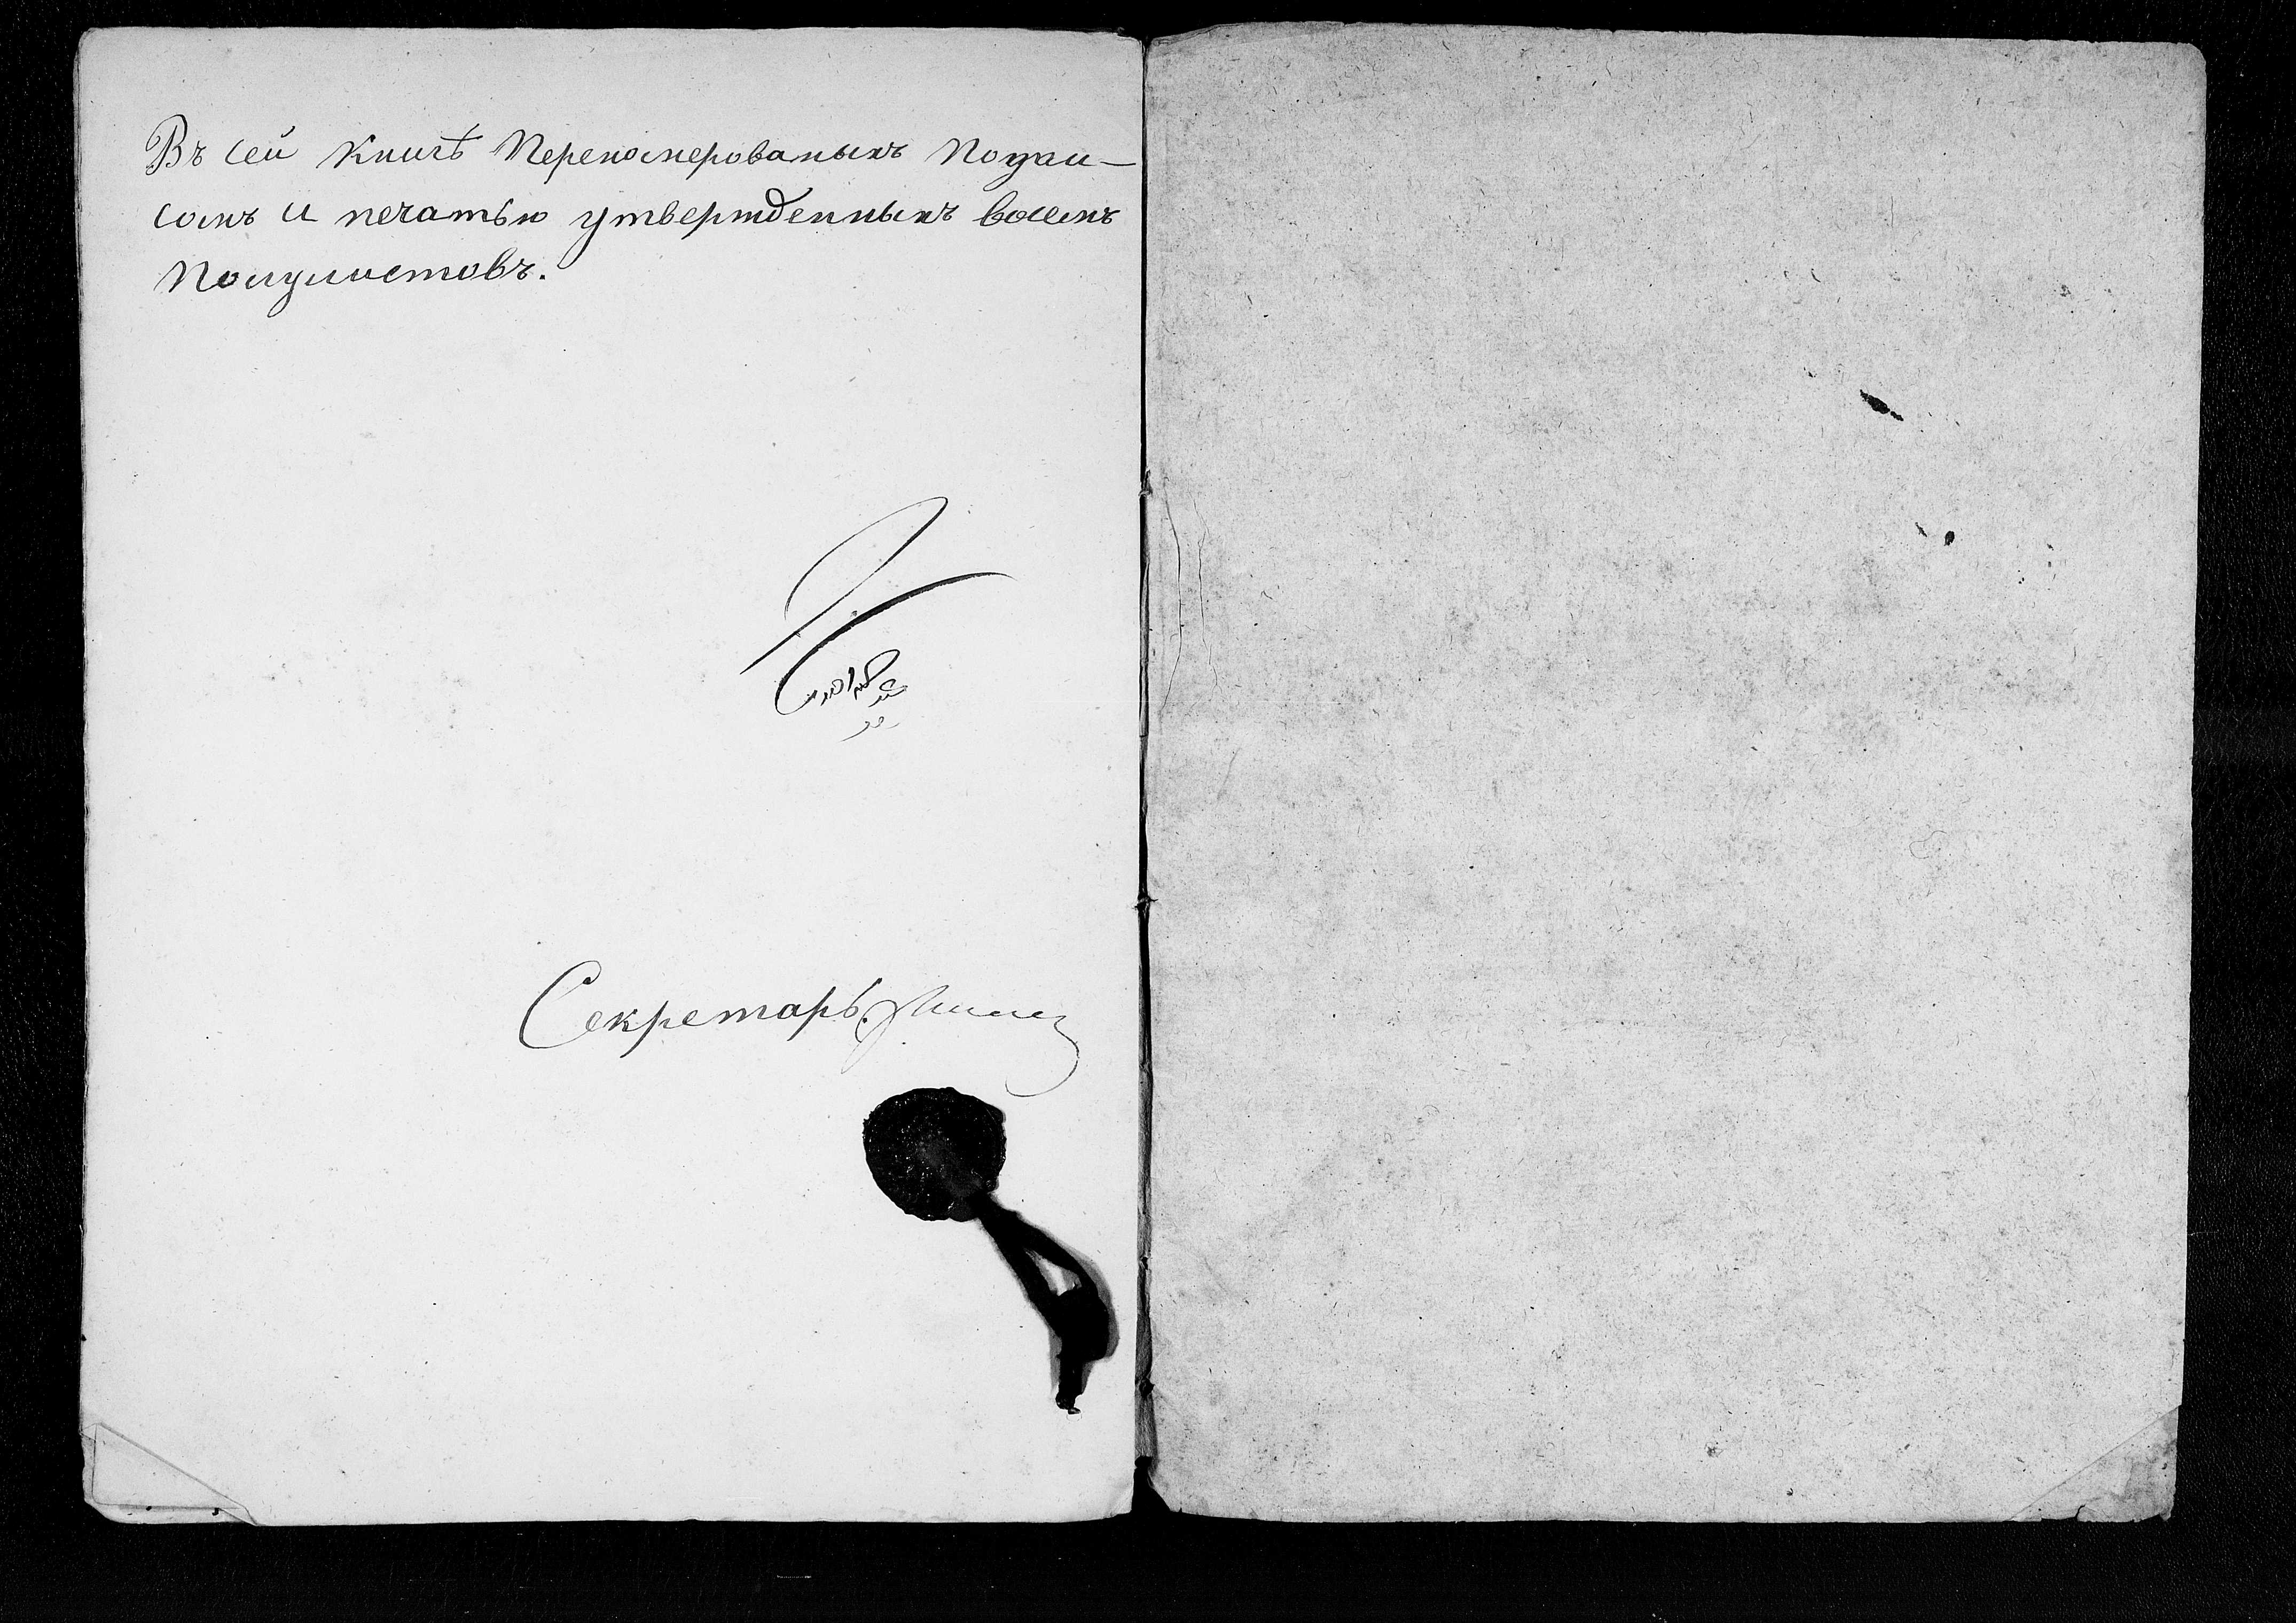 Въ сей Книгѣ Переномерованыхъ Подпи-
сомъ и печатью утвержденныхъ восемь
Полулистовъ.
Секретарь